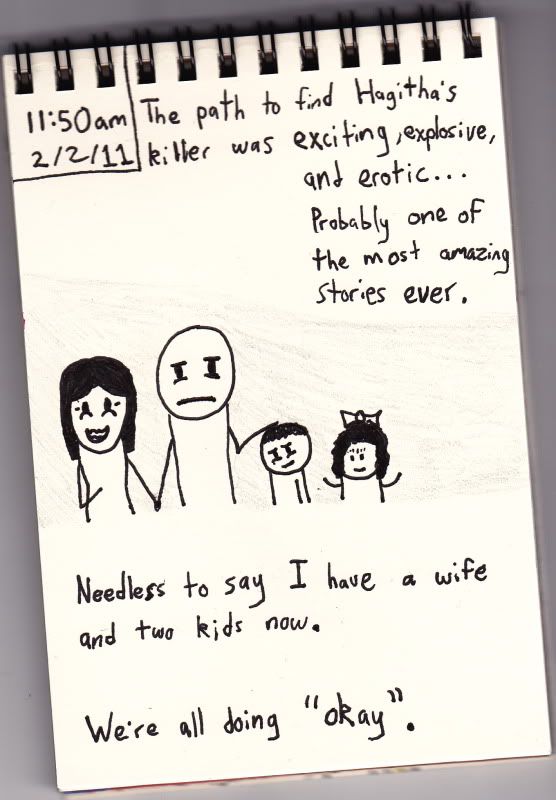 11:50am
2/2/11
The path to find Hagitha's
killer was exciting, explosive,
and erotic...
Probably one of
the most amazing
stories ever.
Needless to say I have a wife
and two kids now.
We're all doing "okay".